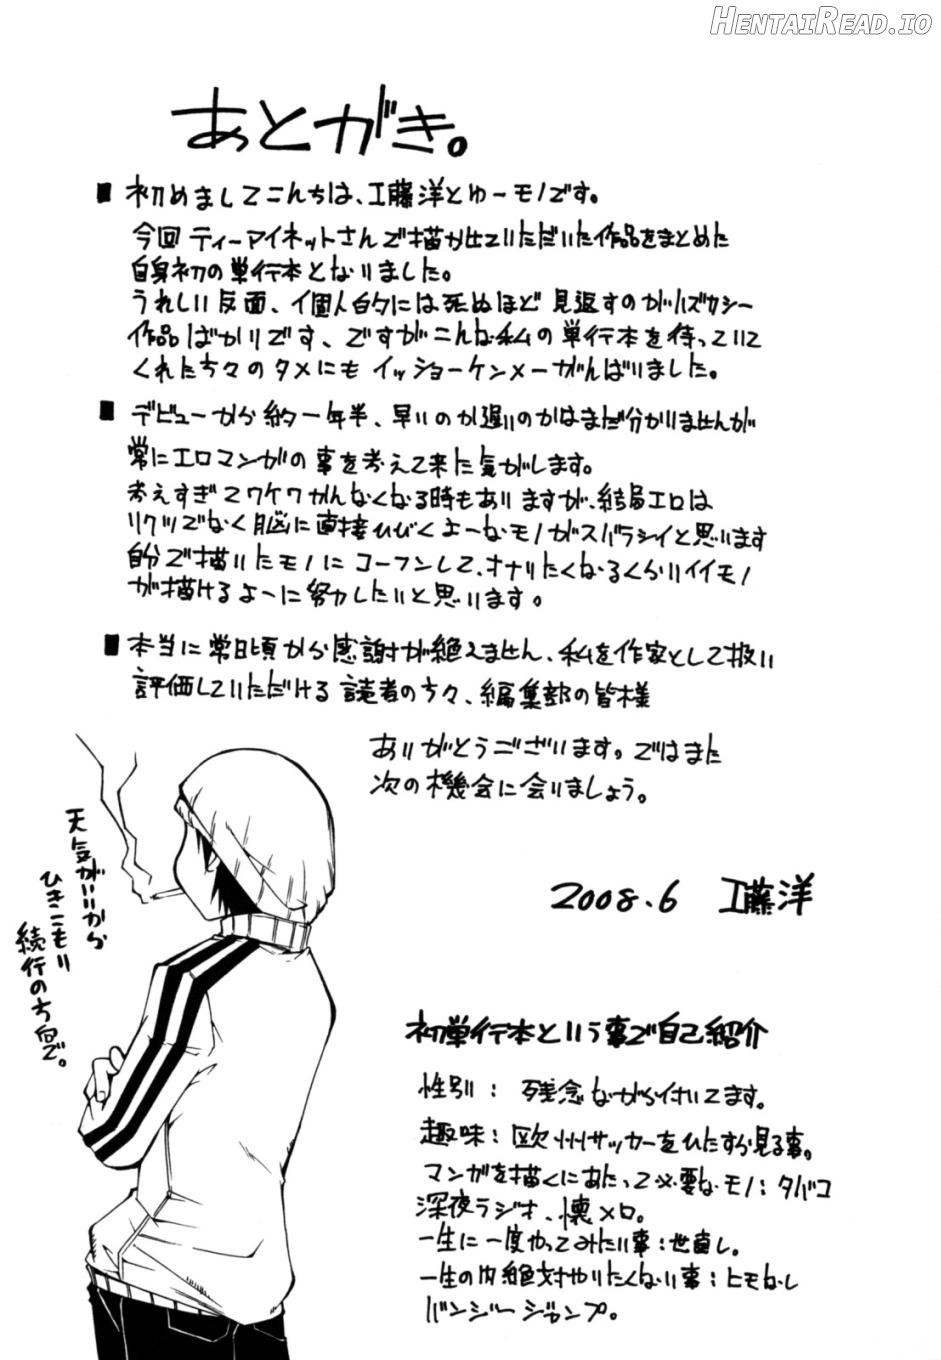 HENTAIREAD.IO
あとがき。
■ 初めましてこんちは、工藤洋とゆーモノです。
今回 ティーアイネットさんで描かせていただいた作品をまとめた
自身初の単行本となりました。
うれしい反面、個人的には死ぬほど見返すのがハズカシー
作品ばかりです、ですがこんな私の単行本を待っていて
くれた方々のタメにも イッショーケンメーがんばりました。
■ デビューから約一年半、早いのか遅いのかはまだ分かりませんが
常にエロマンガの事を考えて来た気がします。
考えすぎてワケワカんなくなる時もありますが、結局エロは
リクツでなく脳に直接ひびくよーなモノがスバラシイと思います
自分で描いたモノにコーフンして、オナりたくなるくらいイイモノ
が描けるよーに努力したいと思います。
■ 本当に常日頃から感謝が絶えません、私を作家として扱い
評価していただける読者の方々、編集部の皆様
ありがとうございます。ではまた
次の機会に会いましょう。
2008.6 工藤洋
天気がいいから
ひきこもり
続行の方向で。
初単行本という事で自己紹介
性別：残念ながら付いてます。
趣味：欧州サッカーをひたすら見る事。
マンガを描くにあたって必要なモノ：タバコ
深夜ラジオ、懐メロ。
一生に一度やってみたい事：世直し。
一生の内絶対やりたくない事：ヒモなし
バンジージャンプ。